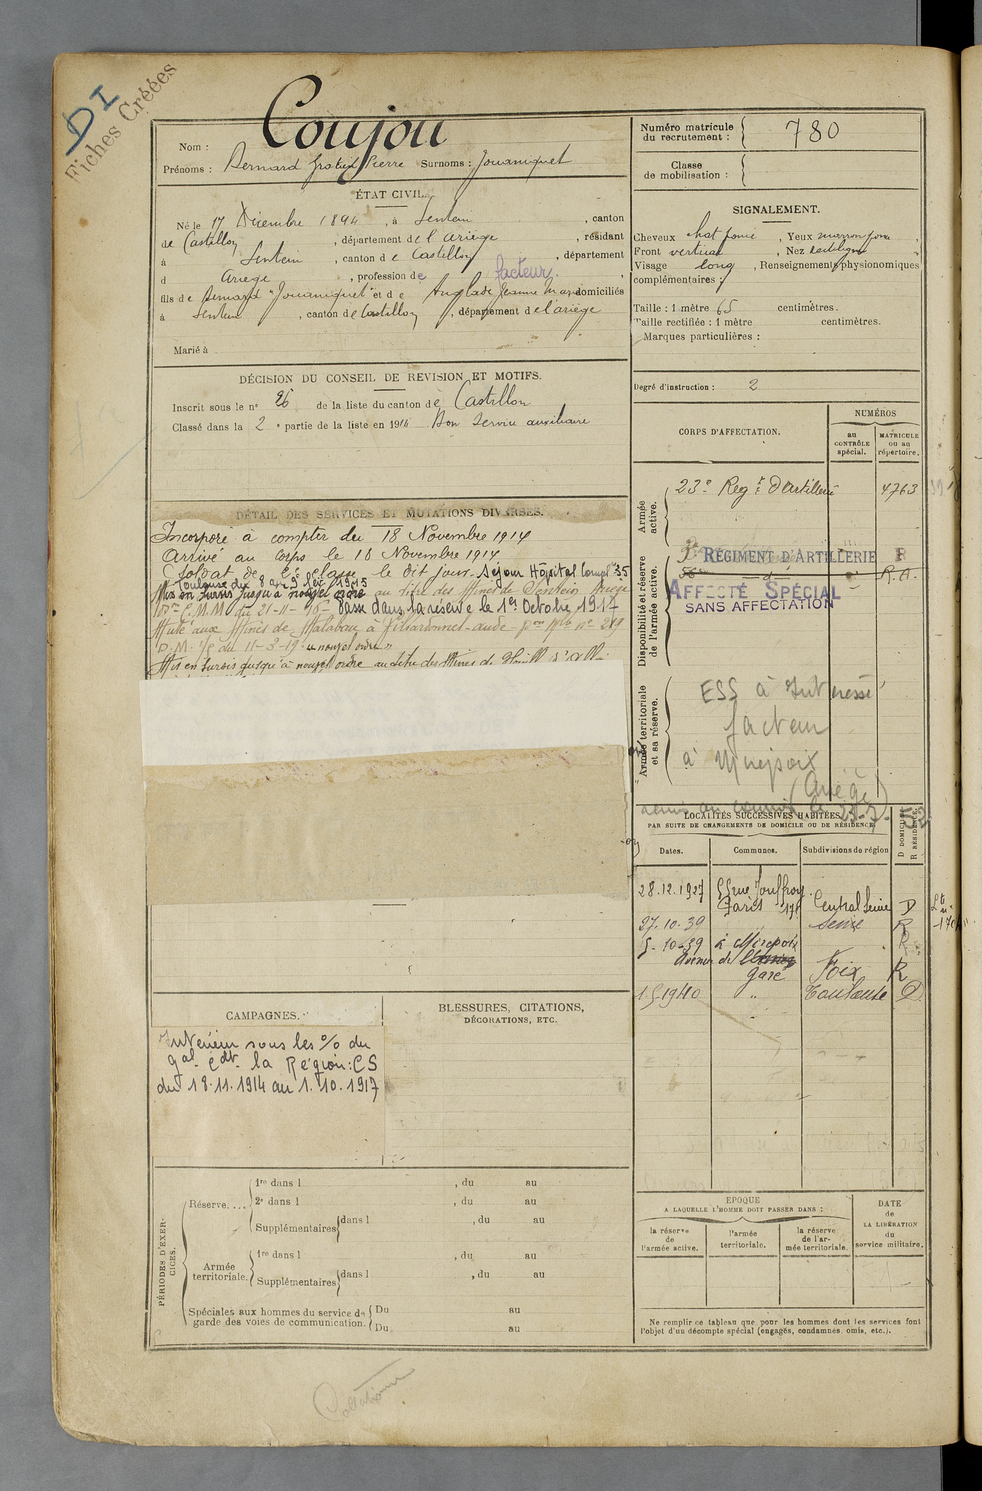 DI
Fiches Créées
Coujou
Nom :
Prénoms : Bernard Pierre Surnoms : Jouaniquet
ÉTAT CIVIL.
Né le 17 Décembre 1894, à Sentein, canton
de Castillon, département de l'Ariège, résidant
à Sentein, canton de Castillon, département
d Ariège, profession de facteur,
fils de Bernard "Jouaniquet" et de Anglade Jeanne Marie domiciliés
à Sentein, canton de Castillon, département de l'ariège
Marié à
DÉCISION DU CONSEIL DE REVISION ET MOTIFS.
Inscrit sous le n° 26 de la liste du canton de Castillon
Classé dans la 2e partie de la liste en 1914 Bon Service auxiliaire
DÉTAIL DES SERVICES ET MUTATIONS DIVERSES.
Incorporé à compter du 18 Novembre 1914
Arrivé au corps le 18 Novembre 1914
Soldat de 2e classe le dit jour. Séjour Hôpital Compl re 35
Toulouse du 8 au 9 1915
Mis en sursis jusqu'à nouvel ordre au titre des Mines de Sentein Ariège
du 21-11-16 Passé dans la réserve le 1er Octobre 1917
Muté aux Mines de Malabau à Villardonnel-aude- n° 289
D.M. du 11-3-19 "à nouvel ordre"
Mis en sursis jusqu'à nouvel ordre au titre des Mines de
CAMPAGNES.
Intérieur sous les % du
gal cdt la Région : CS
du 18.11.1914 au 1.10.1917
BLESSURES, CITATIONS,
DÉCORATIONS, ETC.
PÉRIODES D'EXERCICES.
Réserve....
1re dans l , du au
2e dans l , du au
Supplémentaires dans l , du au
Armée territoriale.
1re dans l , du au
Supplémentaires dans l , du au
Spéciales aux hommes du service de garde des voies de communication.
Du au
Du au
Numéro matricule du recrutement : 780
Classe de mobilisation :
SIGNALEMENT.
Cheveux chat foncé, Yeux marron foncé,
Front vertical, Nez rectiligne
Visage long, Renseignements physionomiques
complémentaires :
Taille : 1 mètre 65 centimètres.
Taille rectifiée : 1 mètre centimètres.
Marques particulières :
Degré d'instruction : 2
CORPS D'AFFECTATION.
NUMÉROS
au CONTRÔLE spécial.
MATRICULE ou au répertoire.
Armée active.
23e Regt d'Artillerie 4763
Disponibilité et réserve de l'armée active.
RÉGIMENT D'ARTILLERIE R
R.A.
AFFECTÉ SPÉCIAL
SANS AFFECTATION
Armée territoriale et sa réserve.
ESS à Intéressé
facteur
à Mirepoix
(Ariège)
LOCALITÉS SUCCESSIVES HABITÉES
PAR SUITE DE CHANGEMENTS DE DOMICILE OU DE RÉSIDENCE.
Dates. Communes. Subdivisions de région D DOMICILE R RÉSIDENCE
28.12.1927 55 rue Jouffroy
Paris 17e Central Seine D
27.10.39 " Seine R
5.10.39 à Mirepoix R
de
Gare Foix R
1.5.1940 " Toulouse D
EPOQUE
A LAQUELLE L'HOMME DOIT PASSER DANS :
la réserve de l'armée active.
l'armée territoriale.
la réserve de l'armée territoriale.
DATE de LA LIBÉRATION du service militaire.
Ne remplir ce tableau que pour les hommes dont les services font
l'objet d'un décompte spécial (engagés, condamnés, omis, etc.).